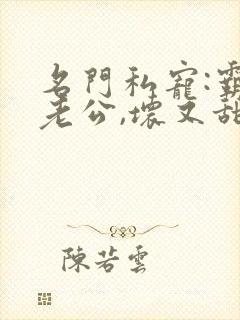 名門私寵:霸
老公,壞又甜
陳若雲